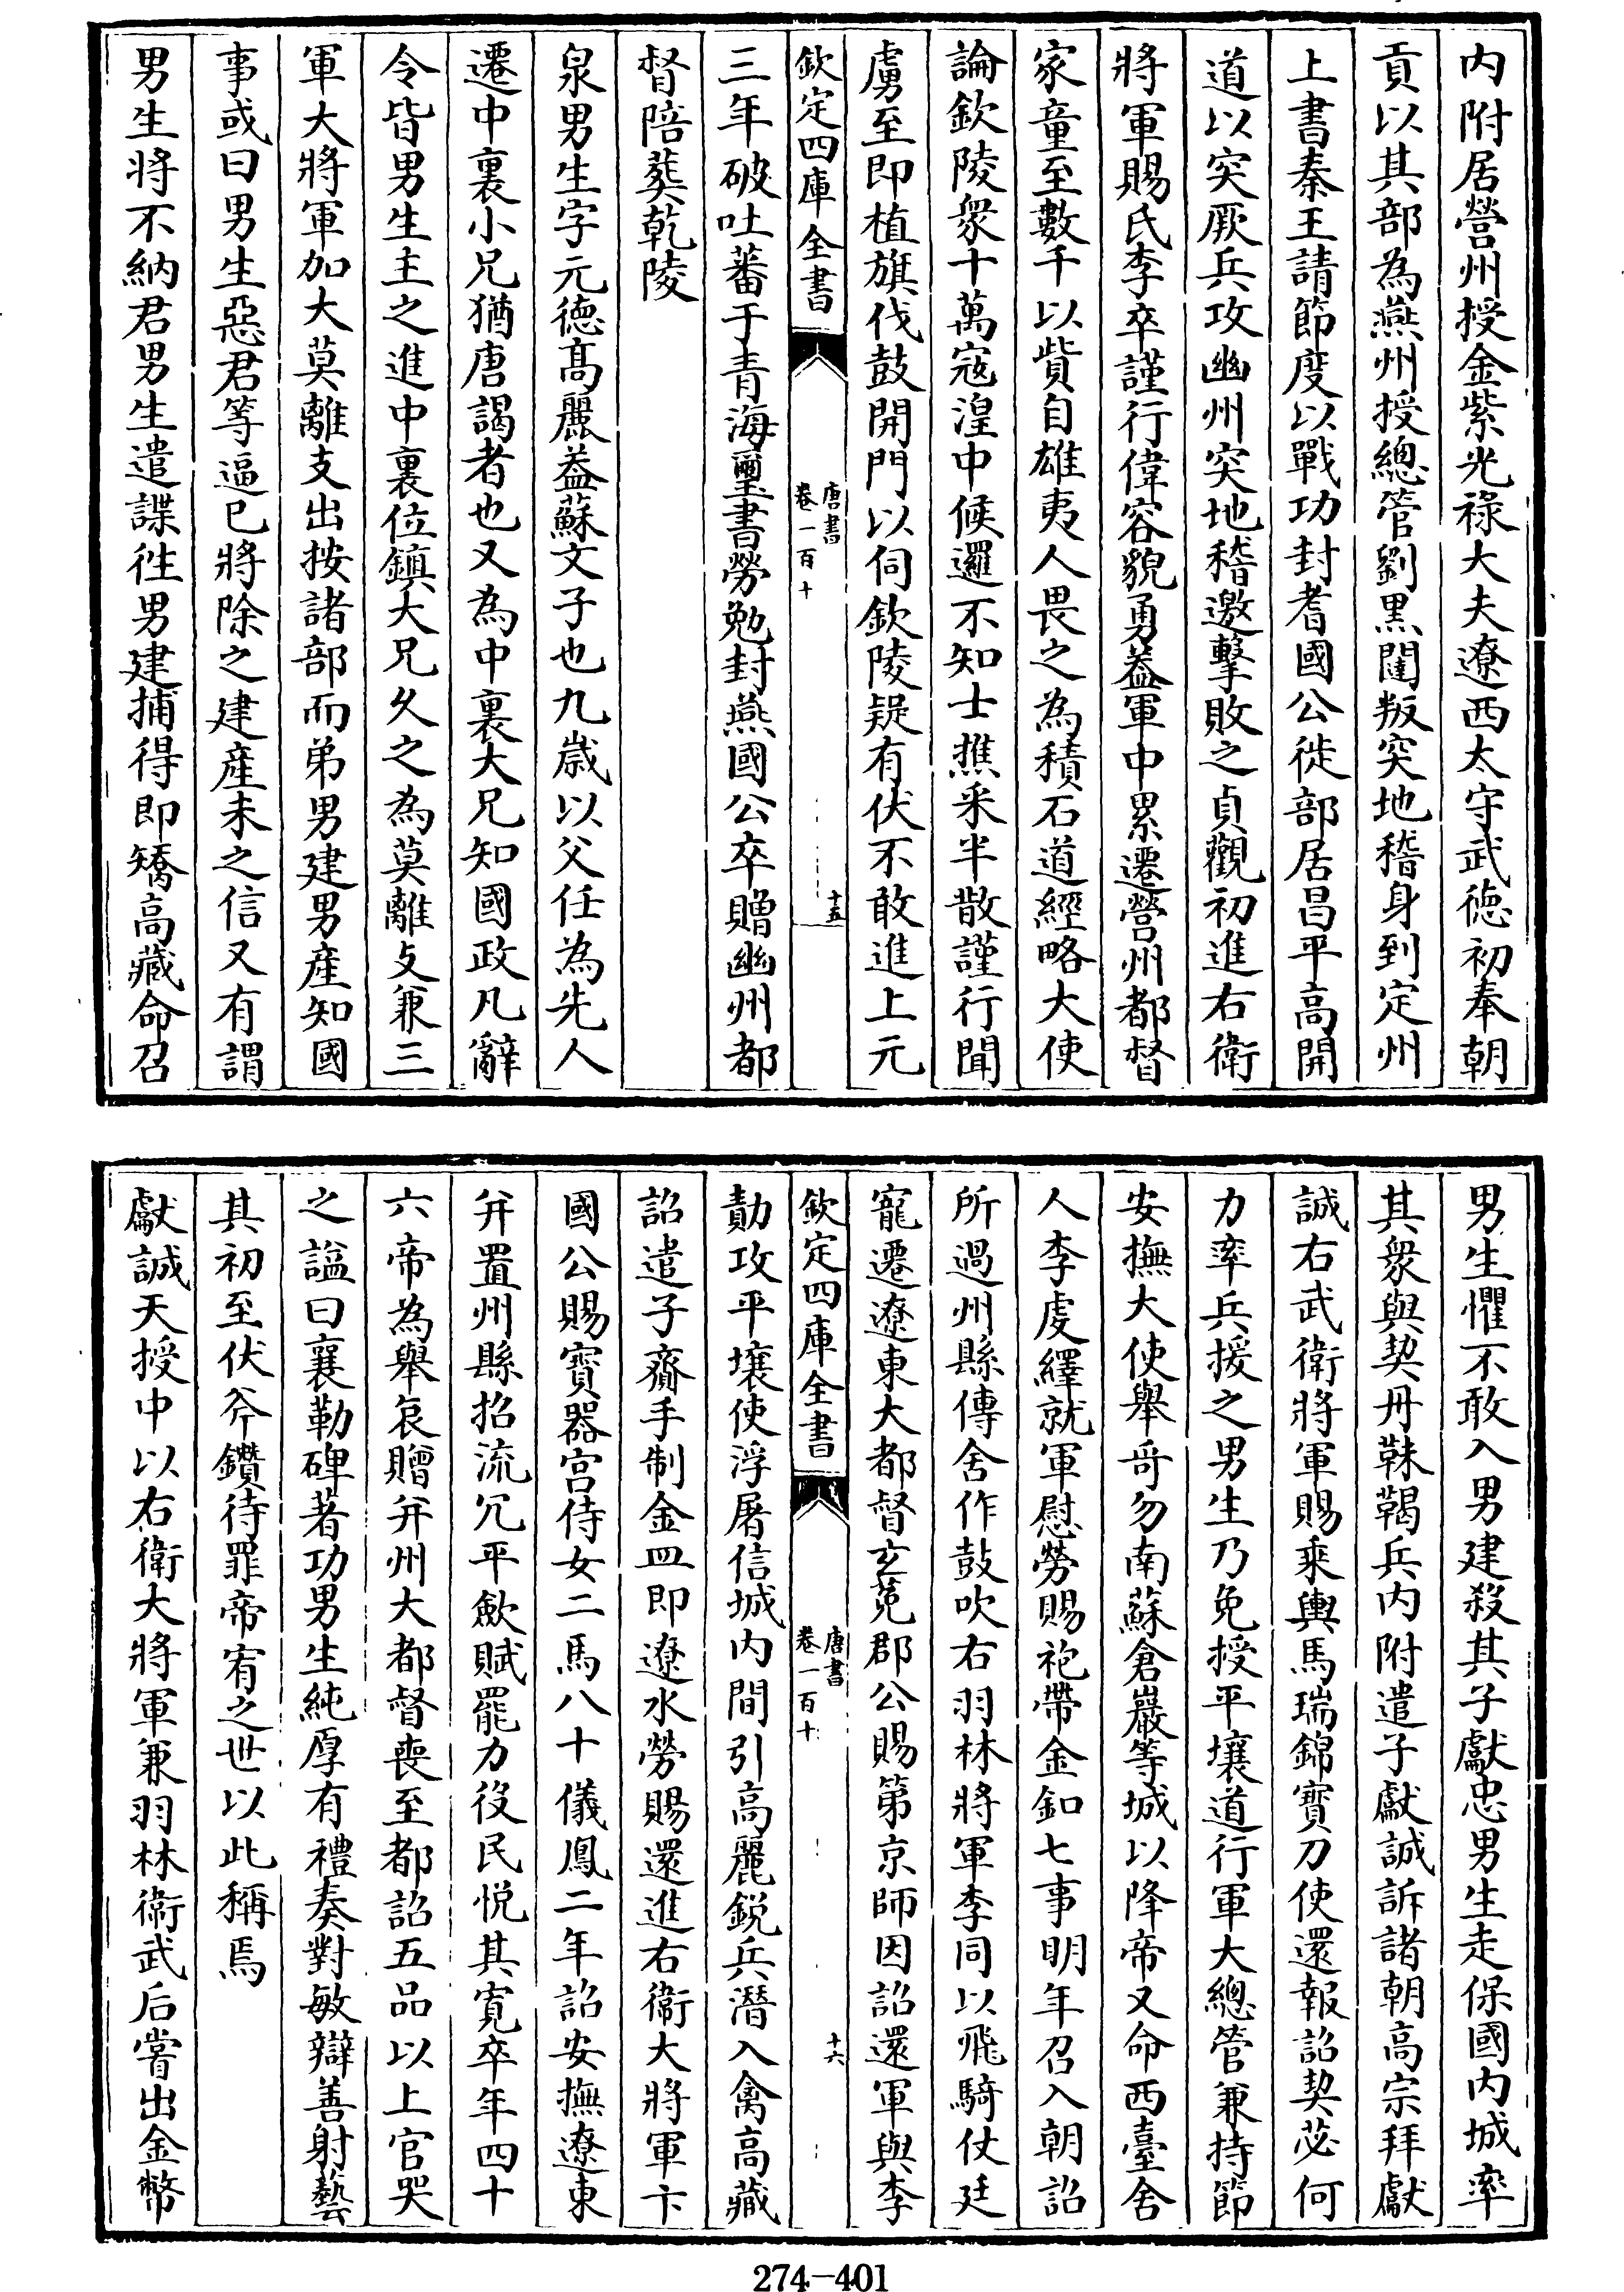 內附居營州授金紫光祿大夫遼西太守武德初奉朝
貢以其部為燕州授總管劉黑闥叛突地稽身到定州
上書秦王請節度以戰功封耆國公徙部居昌平高開
道以突厥兵攻幽州突地稽邀擊敗之貞觀初進右衛
將軍賜氏李卒謹行偉容貌勇蓋軍中累遷營州都督
家童至數千以貲自雄夷人畏之為積石道經略大使
論欽陵衆十萬寇湟中候邏不知士樵采半散謹行聞
虜至即植旗伐鼓開門以伺欽陵疑有伏不敢進上元
欽定四庫全書
唐書
卷一百十
十五
三年破吐蕃于青海璽書勞勉封燕國公卒贈幽州都
督陪葬乾陵
泉男生字元德髙麗蓋蘇文子也九歳以父任為先人
遷中裏小兄猶唐謁者也又為中裏大兄知國政凡辭
令皆男生主之進中裏位鎮大兄久之為莫離支兼三
軍大將軍加大莫離支出按諸部而弟男建男産知國
事或曰男生惡君等逼已將除之建産未之信又有謂
男生將不納君男生遣諜徃男建捕得即矯高藏命召
男生懼不敢入男建殺其子獻忠男生走保國內城率
其衆與契丹靺鞨兵內附遣子獻誠訴諸朝高宗拜獻
誠右武衛將軍賜乘輿馬瑞錦寶刀使還報詔契苾何
力率兵援之男生乃免授平壤道行軍大總管兼持節
安撫大使舉哥勿南蘇倉巖等城以降帝又命西臺舍
人李虔繹就軍慰勞賜袍帶金釦七事明年召入朝詔
所過州縣傳舍作鼓吹右羽林將軍李同以飛騎仗廷
寵遷遼東大都督玄菟郡公賜第京師因詔還軍與李
欽定四庫全書
唐書
卷一百十
十六
勣攻平壤使浮屠信誠內間引高麗鋭兵潛入禽高藏
詔遣子齎手制金皿即遼水勞賜還進右衛大將軍卞
國公賜寳器宮侍女二馬八十儀鳳二年詔安撫遼東
并置州縣招流冗平歛賦罷力役民悅其寛卒年四十
六帝為舉哀贈并州大都督喪至都詔五品以上官哭
之謚曰襄勒碑著功男生純厚有禮奏對敏辯善射藝
其初至伏斧鑕待罪帝宥之世以此稱焉
獻誠天授中以右衛大將軍兼羽林衛武后嘗出金幣
274-401